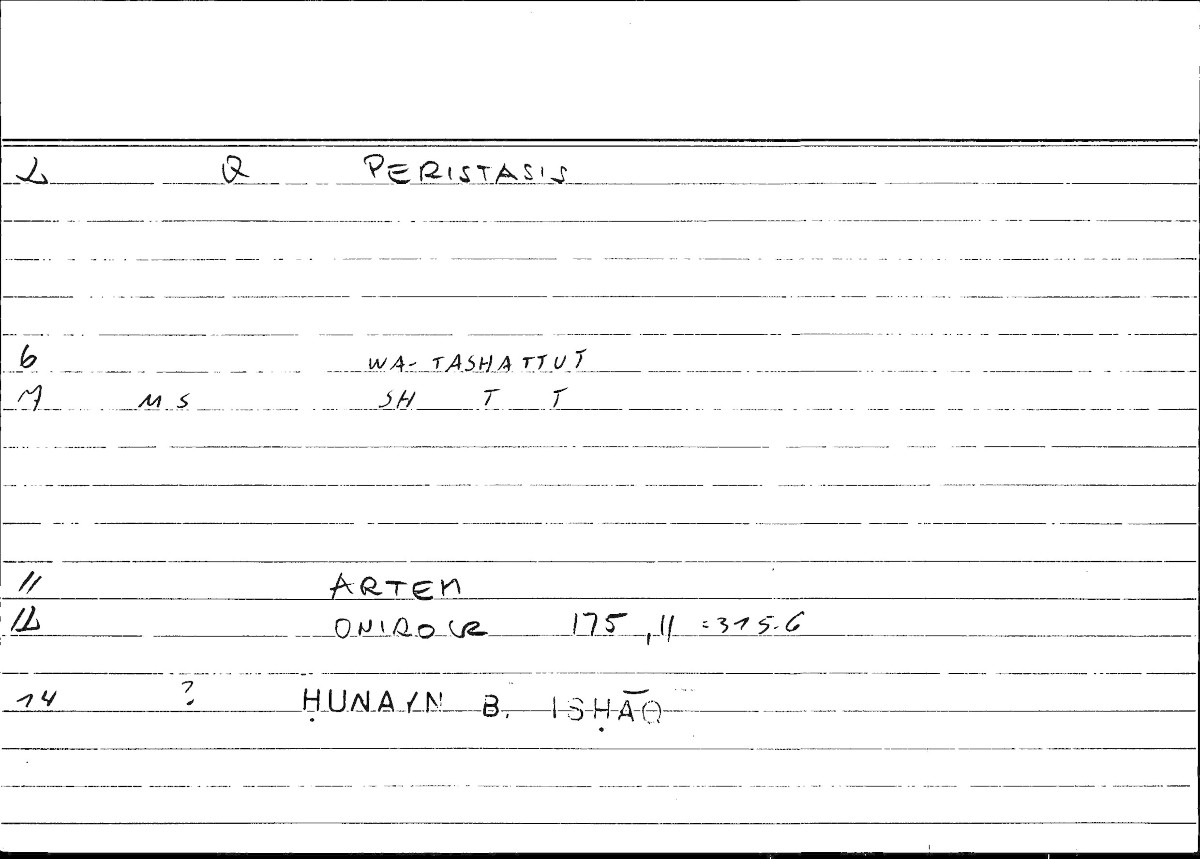 2 Q PERISTASIS
6 WA-TASHATTUT
7 MS SH T T
11 ARTEM
12 ONIROCR 175,11 =315.6
14 ? ḤUNAYN B. ISḤĀQ